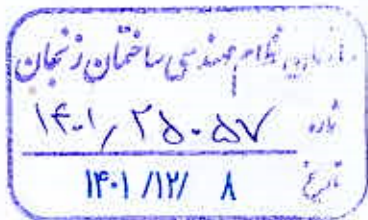 سازمان نظام مهندسی ساختمان زنجان
شماره ۱۴۰۱/۲۵۰۵۷
تاریخ ۱۴۰۱/۱۲/ ۸